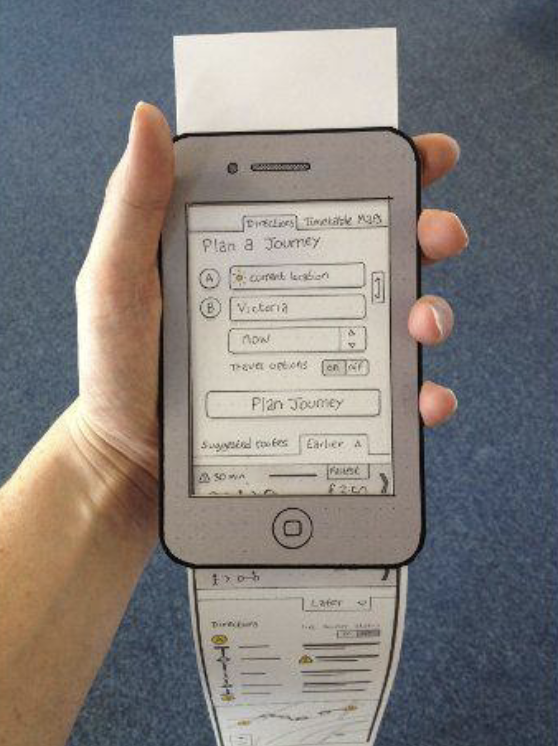 Directions Timetable Maps
Plan a Journey
A current location
B Victoria
now
Travel options on off
Plan Journey
Suggested routes Earlier
30 min
Later
Directions